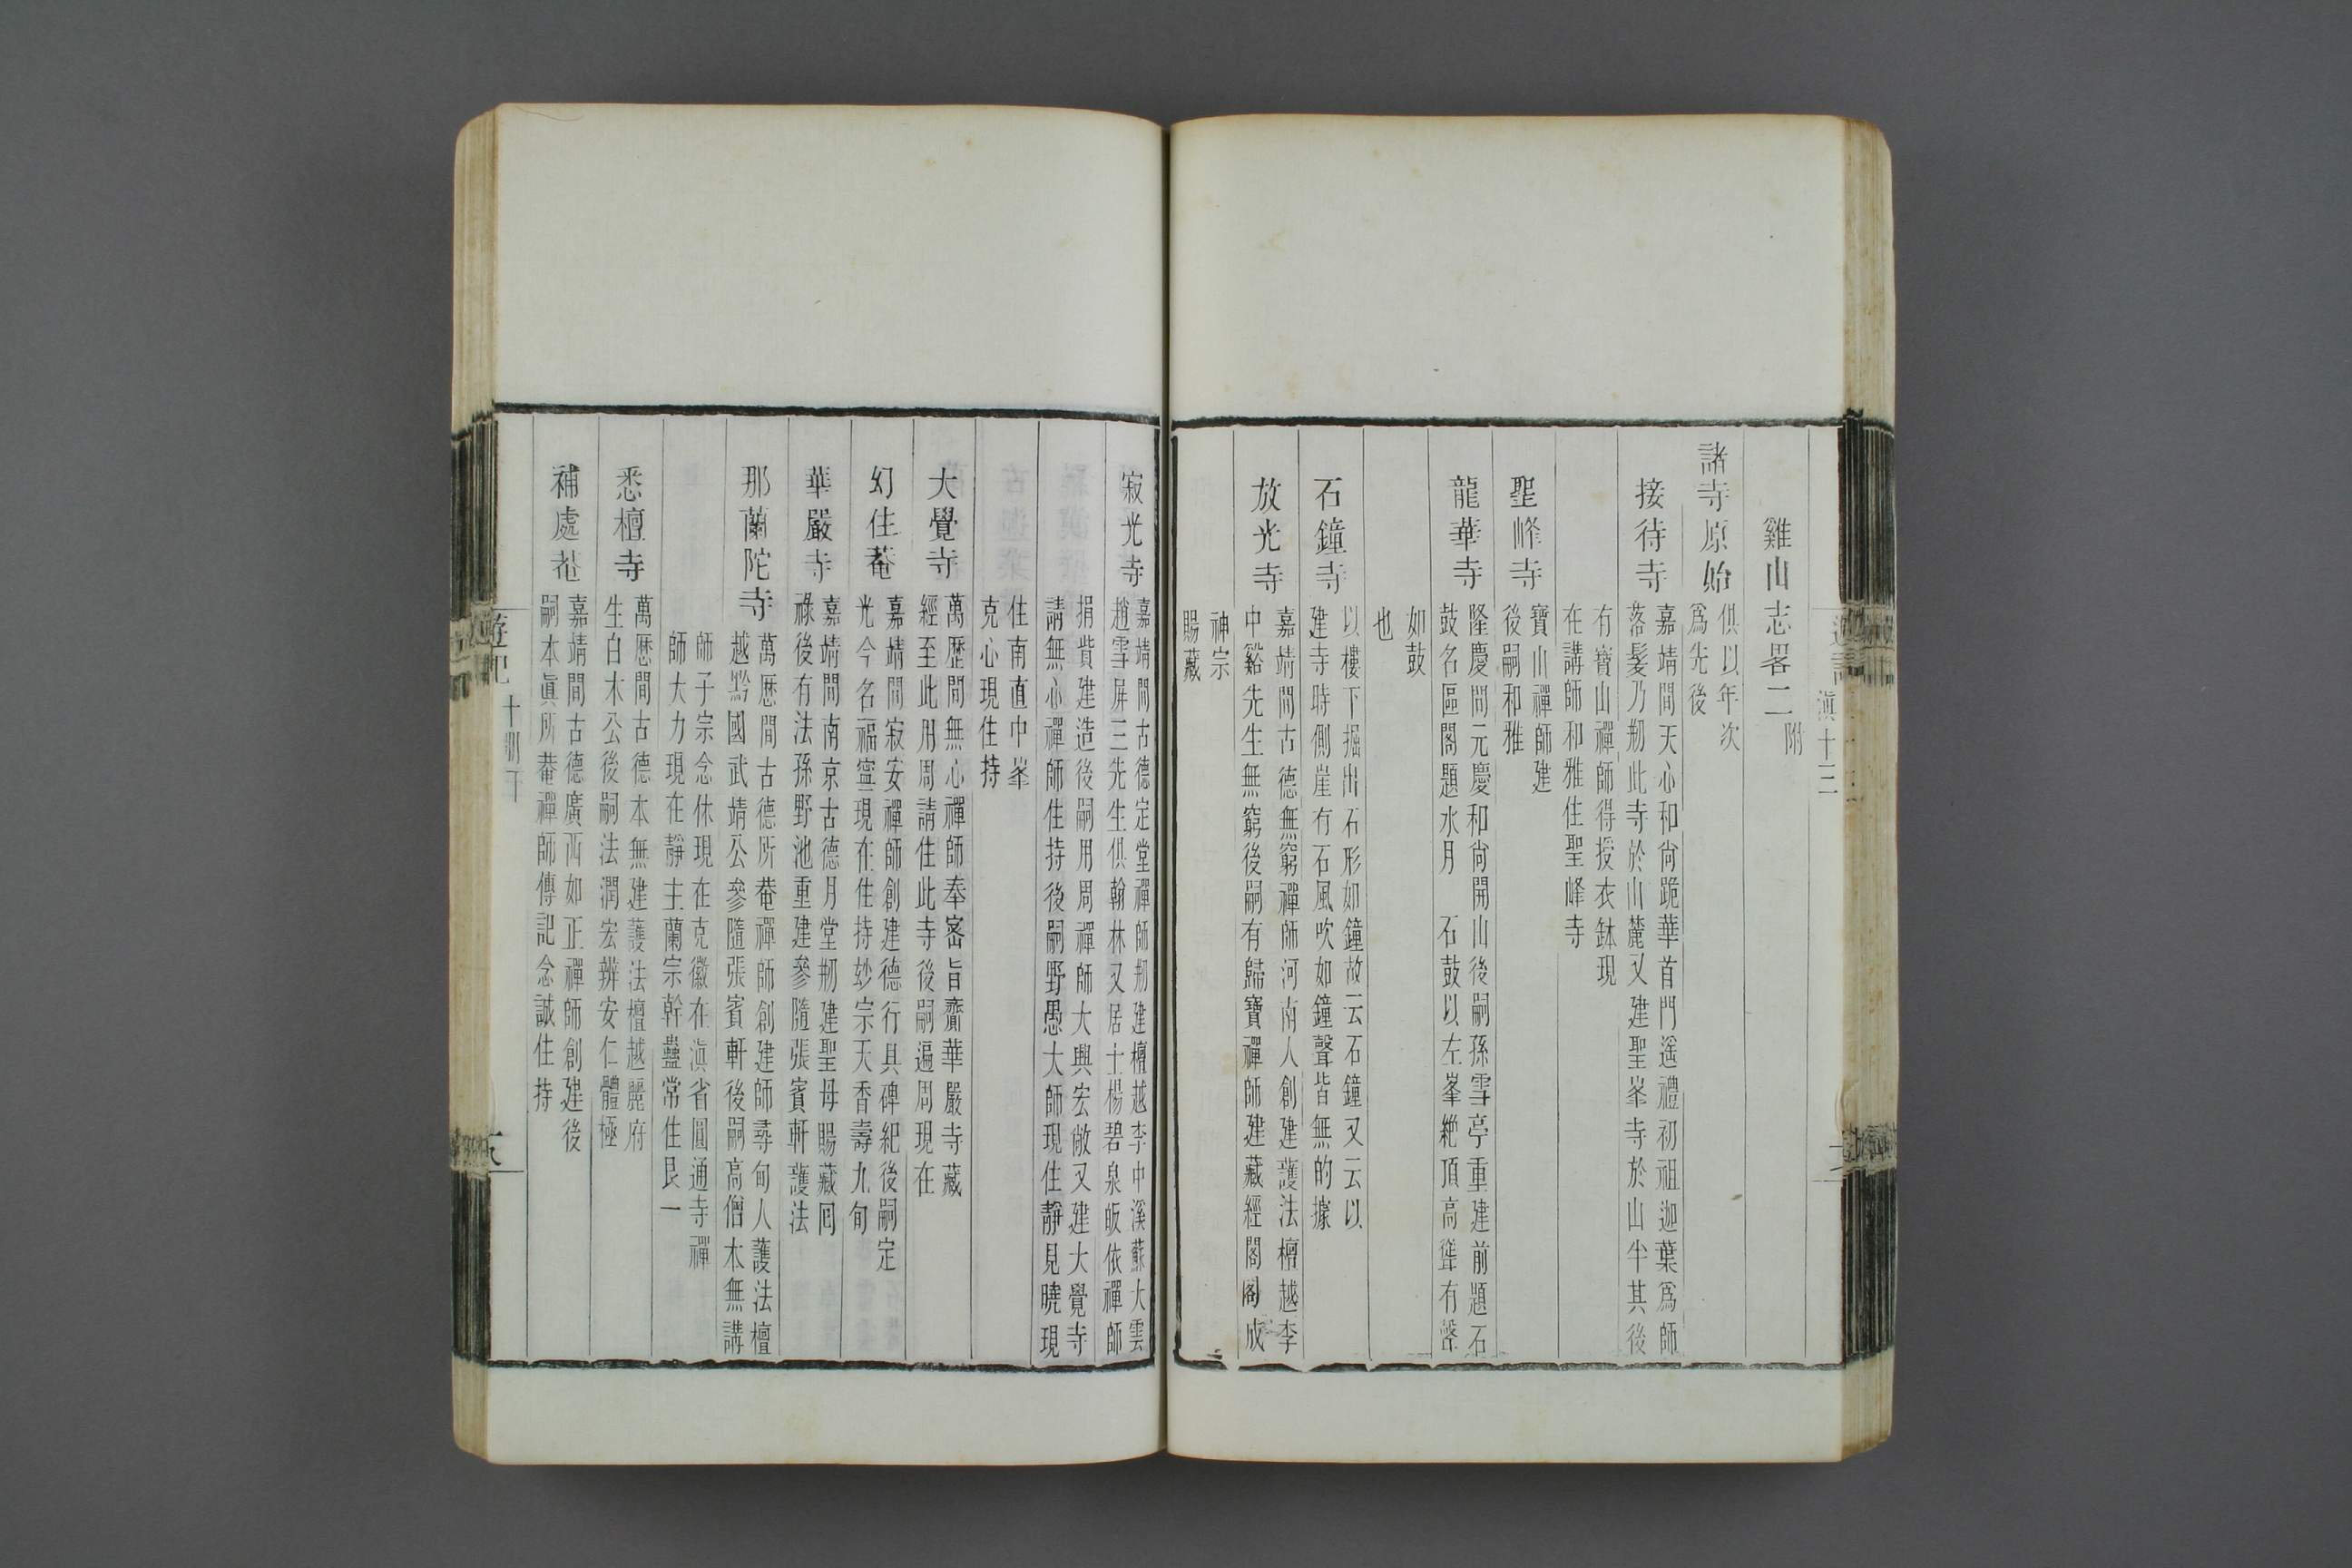 滇十三
雞山志畧二附
諸寺原始
俱以年次
爲先後
接待寺
嘉靖間天心和尚跪華首門遥禮初祖迦葉爲師
落髮乃刱此寺於山麓又建聖峯寺於山半其後
有寶山禪師得授衣鉢現
在講師和雅住聖峰寺
聖峰寺
寶山禪師建
後嗣和雅
龍華寺
隆慶間元慶和尚開山後嗣孫雪亭重建前題石
鼓名區閣題水月 石鼓以左峯絶頂高聳有聲
如鼓
也
石鐘寺
以樓下掘出石形如鐘故云石鐘又云以
建寺時側崖有石風吹如鐘聲皆無的據
放光寺
嘉靖間古德無窮禪師河南人創建護法檀越李
中谿先生無窮後嗣有歸寶禪師建藏經閣閣成
神宗
賜藏
寂光寺
嘉靖間古德定堂禪師刱建檀越李中溪蘇大雲
趙雪屏三先生俱翰林又居士楊碧泉皈依禪師
捐貲建造後嗣用周禪師大興宏敞又建大覺寺
請無心禪師住持後嗣野愚大師現住靜見曉現
住南直中峯
克心現住持
大覺寺
萬歷間無心禪師奉密旨齎華嚴寺藏
經至此用周請住此寺後嗣遍周現在
幻住菴
嘉靖間寂安禪師創建德行具碑紀後嗣定
光今名福寧現在住持妙宗天香壽九旬
華嚴寺
嘉靖間南京古德月堂刱建聖母賜藏囘
祿後有法孫野池重建參隨張賓軒護法
那蘭陀寺
萬歷間古德所菴禪師創建師尋甸人護法檀
越黔國武靖公參隨張賓軒後嗣高僧本無講
師子宗念休現在克徽在滇省圓通寺禪
師大力現在靜主蘭宗幹蠱常住艮一
悉檀寺
萬歷間古德本無建護法檀越麗府
生白木公後嗣法潤宏辨安仁體極
補處菴
嘉靖間古德廣西如正禪師創建後
嗣本眞所菴禪師傳記念誠住持
遊記
十册下